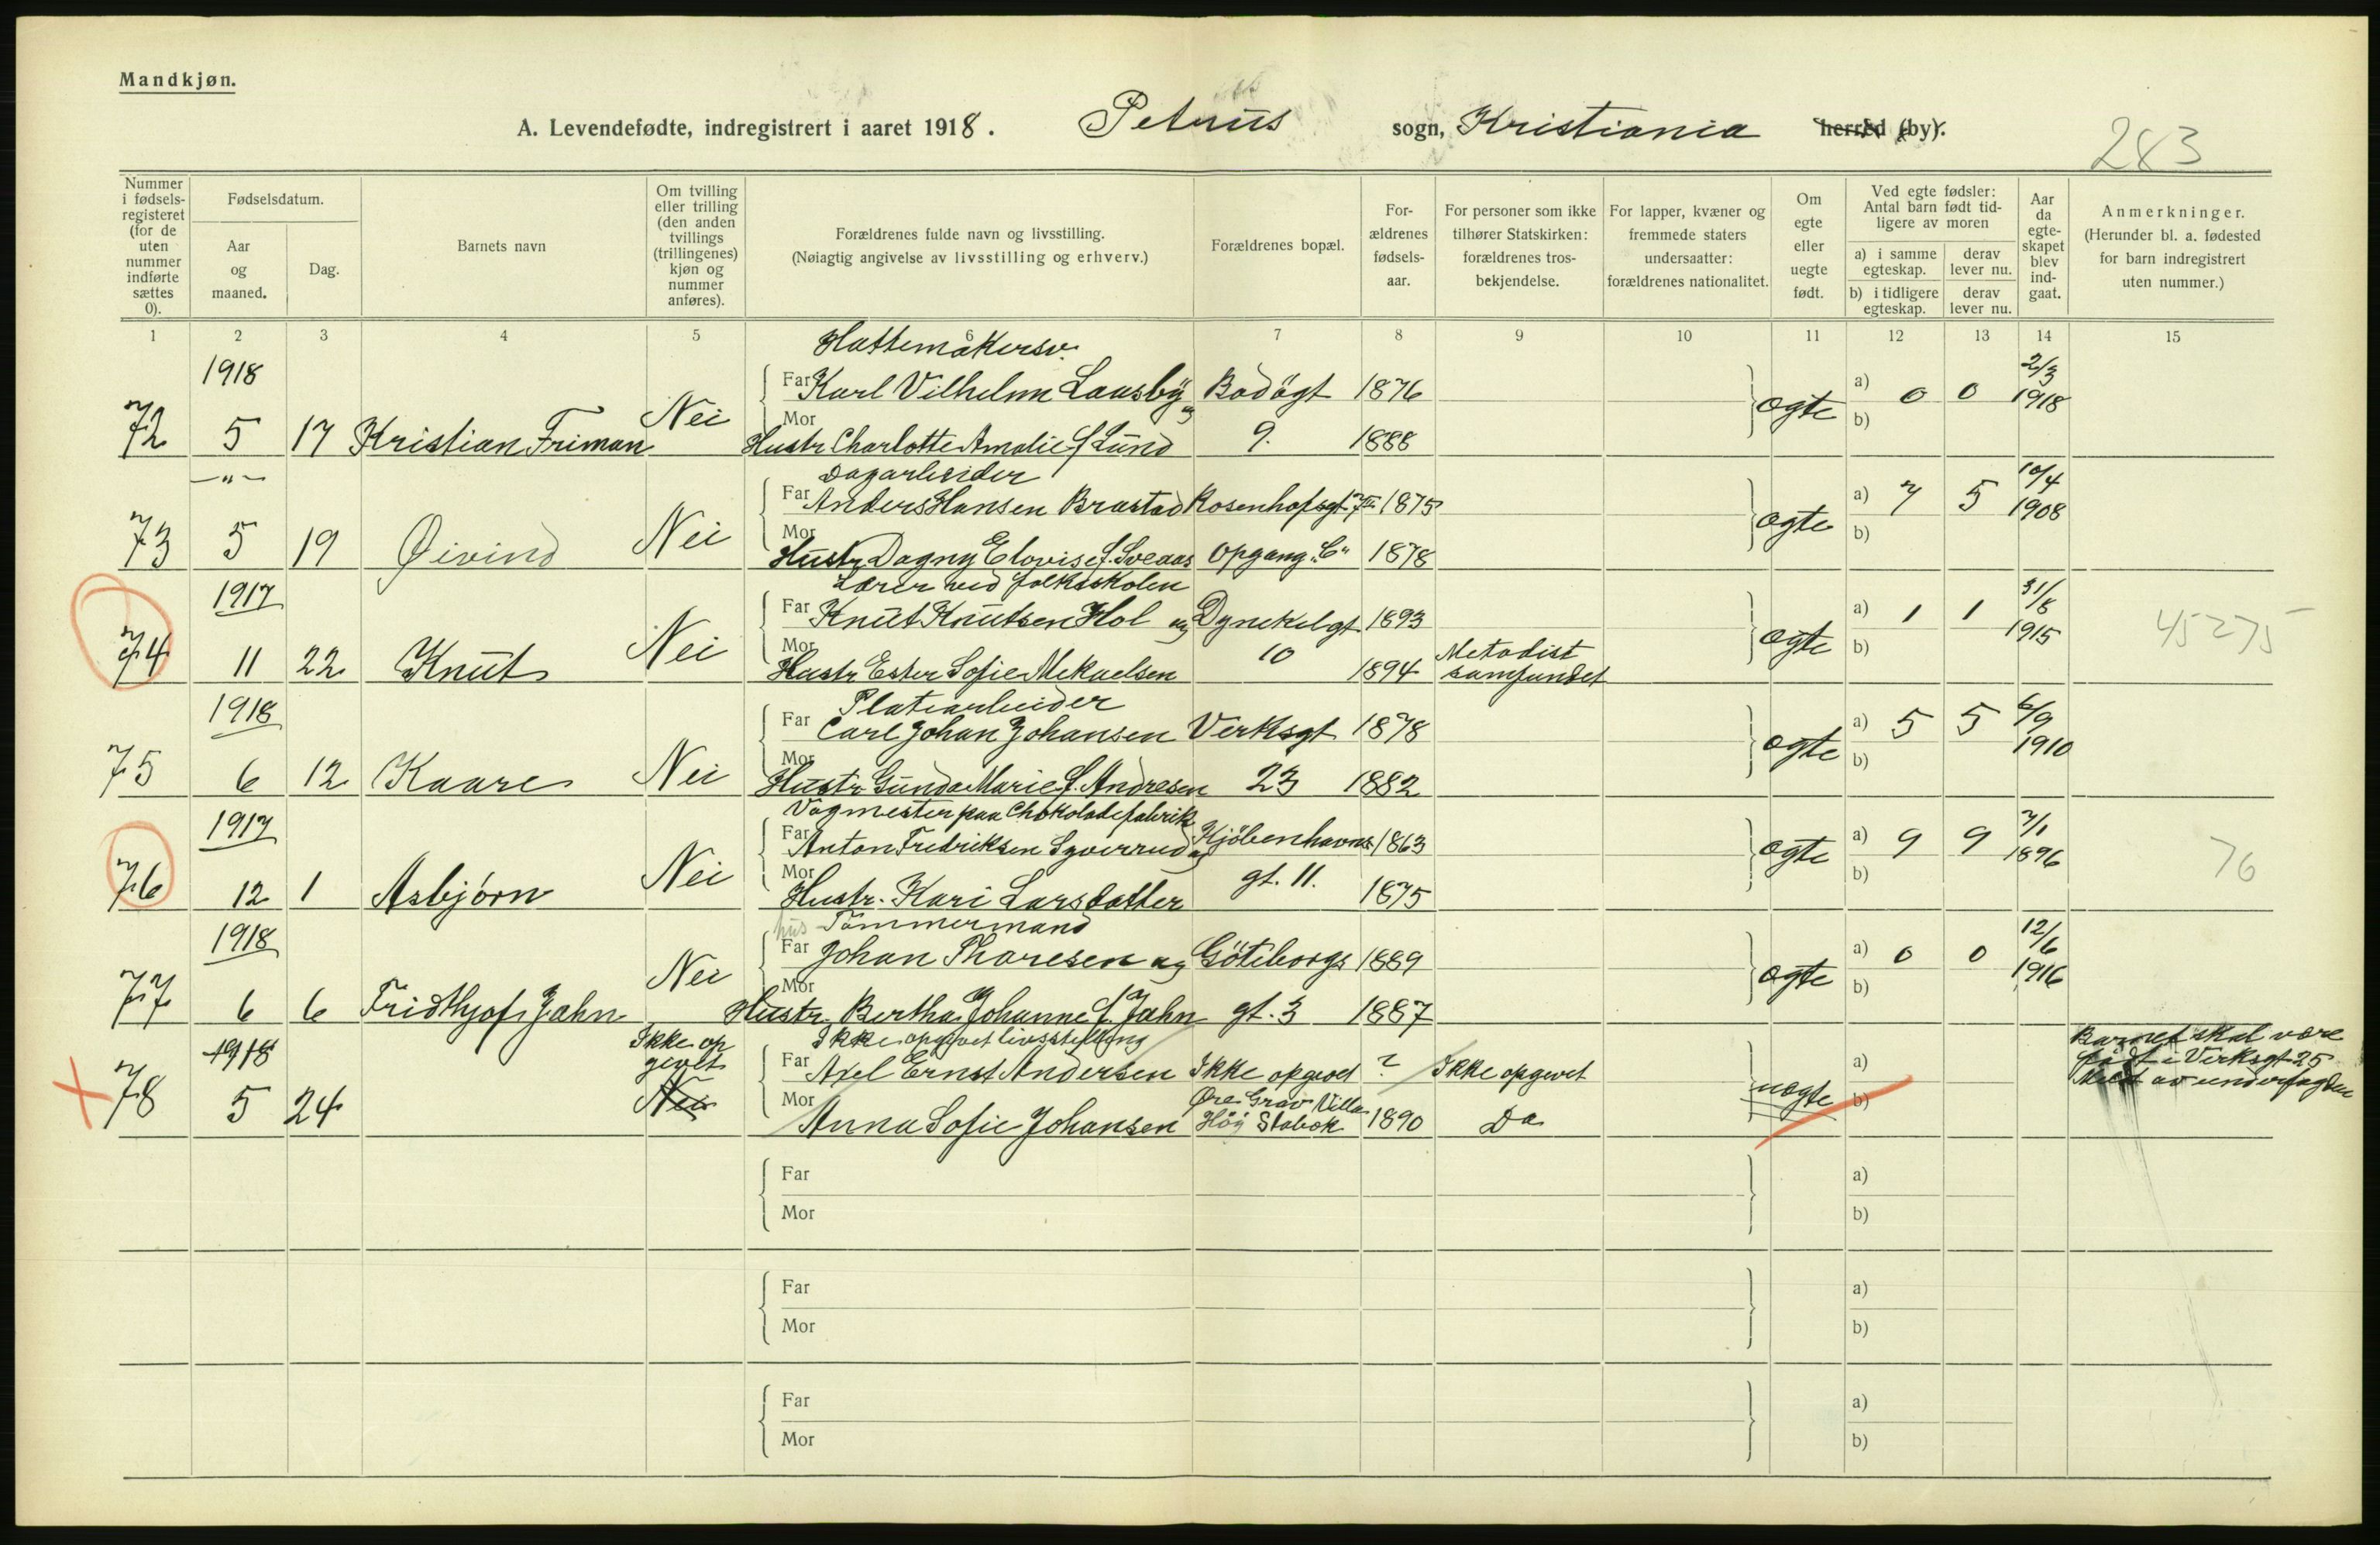 Mandkjøn.
A. Levendefødte, indregistrert i aaret 1918. Petrus sogn, Kristiania herred (by).
283
Nummer i fødsels-registeret (for de uten nummer indførte sættes 0).
Fødselsdatum.
Aar og maaned.
Dag.
Barnets navn
Om tvilling eller trilling (den anden tvillings (trillingenes) kjøn og nummer anføres).
Forældrenes fulde navn og livsstilling.
(Nøiagtig angivelse av livsstilling og erhverv.)
Forældrenes bopæl.
For-ældrenes fødsels-aar.
For personer som ikke tilhører Statskirken: forældrenes tros-bekjendelse.
For lapper, kvæner og fremmede staters undersaatter: forældrenes nationalitet.
Om egte eller uegte født.
Ved egte fødsler: Antal barn født tid-ligere av moren
a) i samme egteskap. derav lever nu.
b) i tidligere egteskap. derav lever nu.
Aar da egte-skapet blev ind-gaat.
Anmerkninger.
(Herunder bl. a. fødested for barn indregistrert uten nummer.)
1 2 3 4 5 6 7 8 9 10 11 12 13 14 15
1918 Hattemakersv. 2/3
Far Karl Vilhelm Lausby og Bodögt 1876 a) 0 0 1918
72 5 17 Kristian Friman Nei Mor Hustr Charlotte Amalie f Lund 9. 1888 egte b)
—"— Dagarbeider 10/4
Far Anders Hansen Brastad Rosenhofsgt 7 III 1875 a) 7 5 1908
73 5 19 Øivind Nei Mor Hustr Dagny Elovise f. Sveaas Opgang "C" 1878 egte b)
1917 Lærer ved folkeskolen 31/8
Far Knut Knutsen Hol og Dynekilgt 1893 a) 1 1 1915 45275
74 11 22 Knut Nei Mor Hustr Ester Sofie Mekaelsen 10 1894 Metodist samfundet egte b)
1918 Platearbeider 6/9
Far Carl Johan Johansen Verksgt 1878 a) 5 5 1910
75 6 12 Kaare Nei Mor Hustr Gunda Marie f. Andresen 23 1882 egte b)
1917 Vogmester paa Chokoladefabrik 7/1
Far Anton Fredriksen Syverrud og Kjöbenhavns 1863 a) 9 9 1896 76
76 12 1 Asbjørn Nei Mor Hustr. Kari Larsdatter gt. 11. 1875 egte b)
1918 hus Tömmermand 12/6
Far Johan Thoresen og Göteborgs 1889 a) 0 0 1916
77 6 6 Fridthjof Jahn Nei Mor Hustr. Bertha Johanne f. Jahn gt. 3 1887 egte b)
1918 Ikke op givet Ikke opgivet livsstilling Barnet skal være
Far Axel Ernst Andersen Ikke opgivet ? Ikke opgivet a) født i Verksgt 25
78 5 24 Nei Mor Anna Sofie Johansen Øre Grav Villa Höy Stabek 1890 Do uegte b)
Far a)
Mor b)
Far a)
Mor b)
Far a)
Mor b)